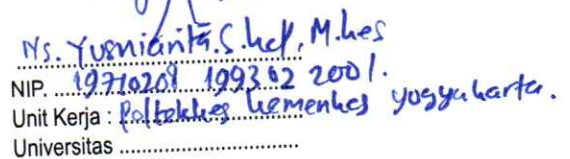 Ns. Yusnianita.S.kep, M.kes
NIP. 19710209 199302 2001.
Unit Kerja : Poltekkes kemenkes yogyakarta.
Universitas ..............................